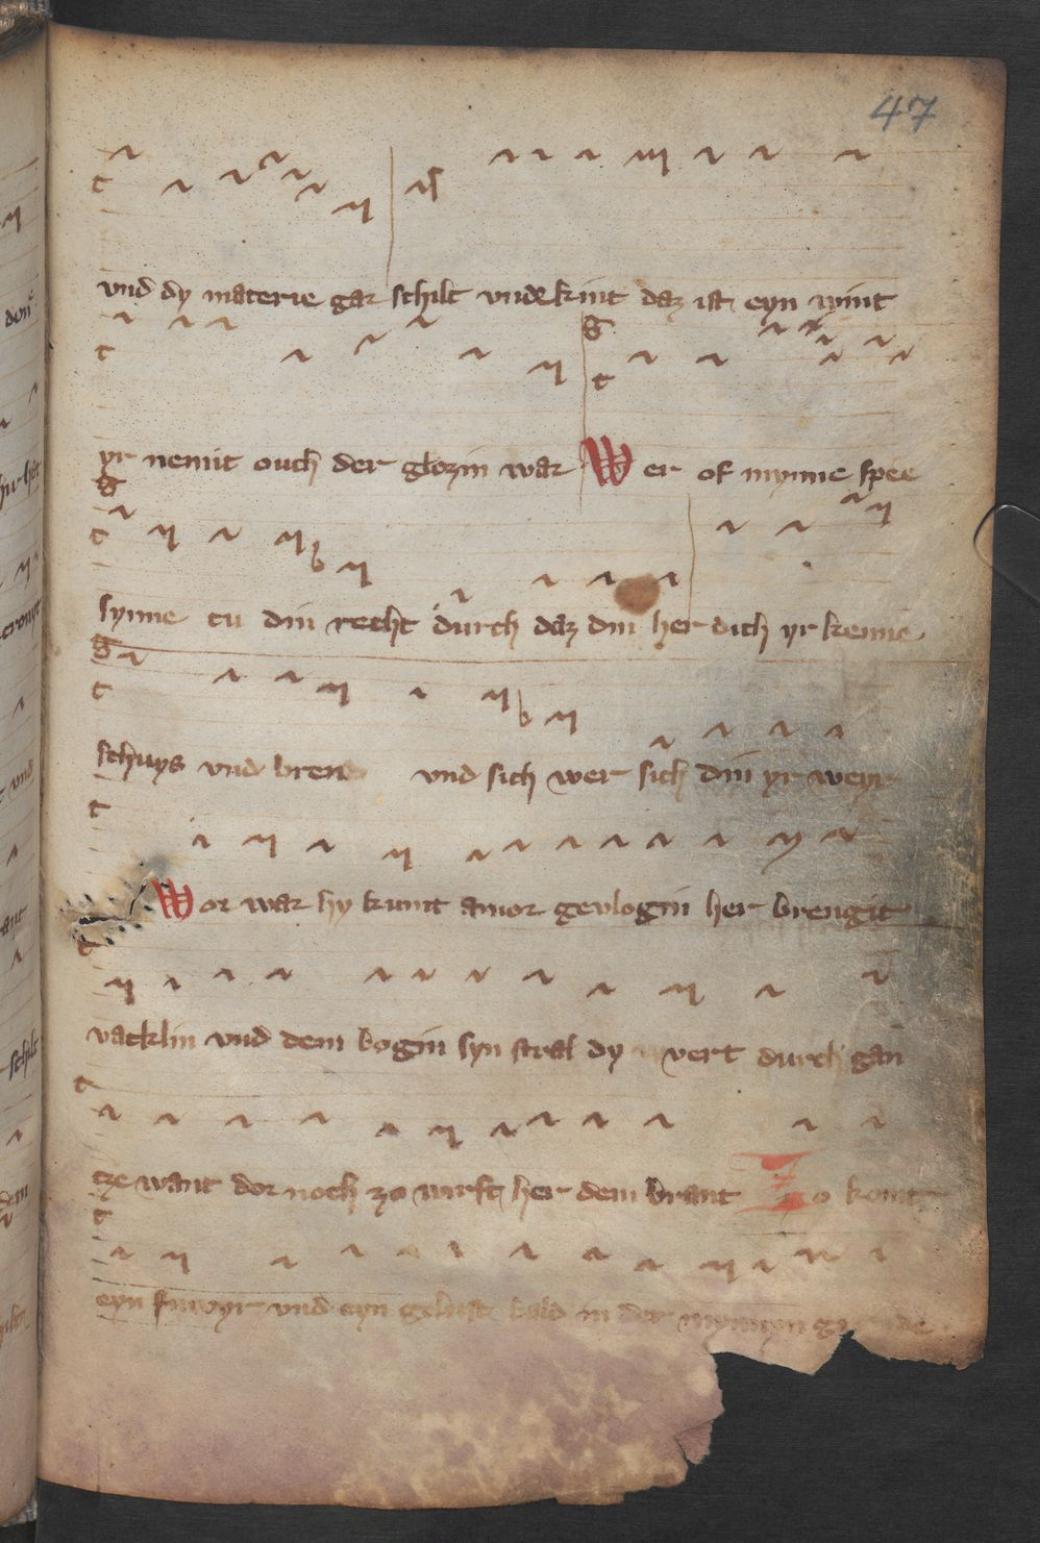 47
vnd dy materie gar schilt vnde kint daz ist eyn wint
yr nemit ouch der glozin war Wer of mynne spee
synne tu din recht durch daz din her dich yr kenne
schuys vnd bren vnd sich wer sich din yr weyr
Wor war hy kumt amor gevlogin her brengit
vacklin vnd dem bogin syn stral dy vert durch gan
cze want dor noch zo wirft her dem brant Zo komt
eyn fuwyr vnd eyn gelust bald in der mynnyn